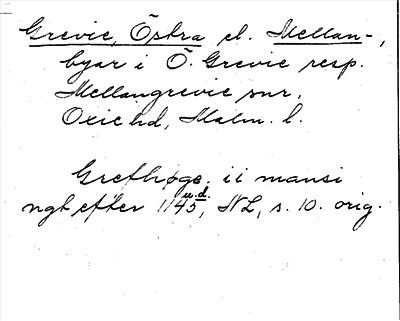 Grevie, Östra el. Mellan-,
byar i Ö. Grevie resp.
Mellangrevie snr.
Oxie hd, Malm. l.
Grefhøge. ii mansi
ngt efter 1145 u.d., NL, s. 10. orig.